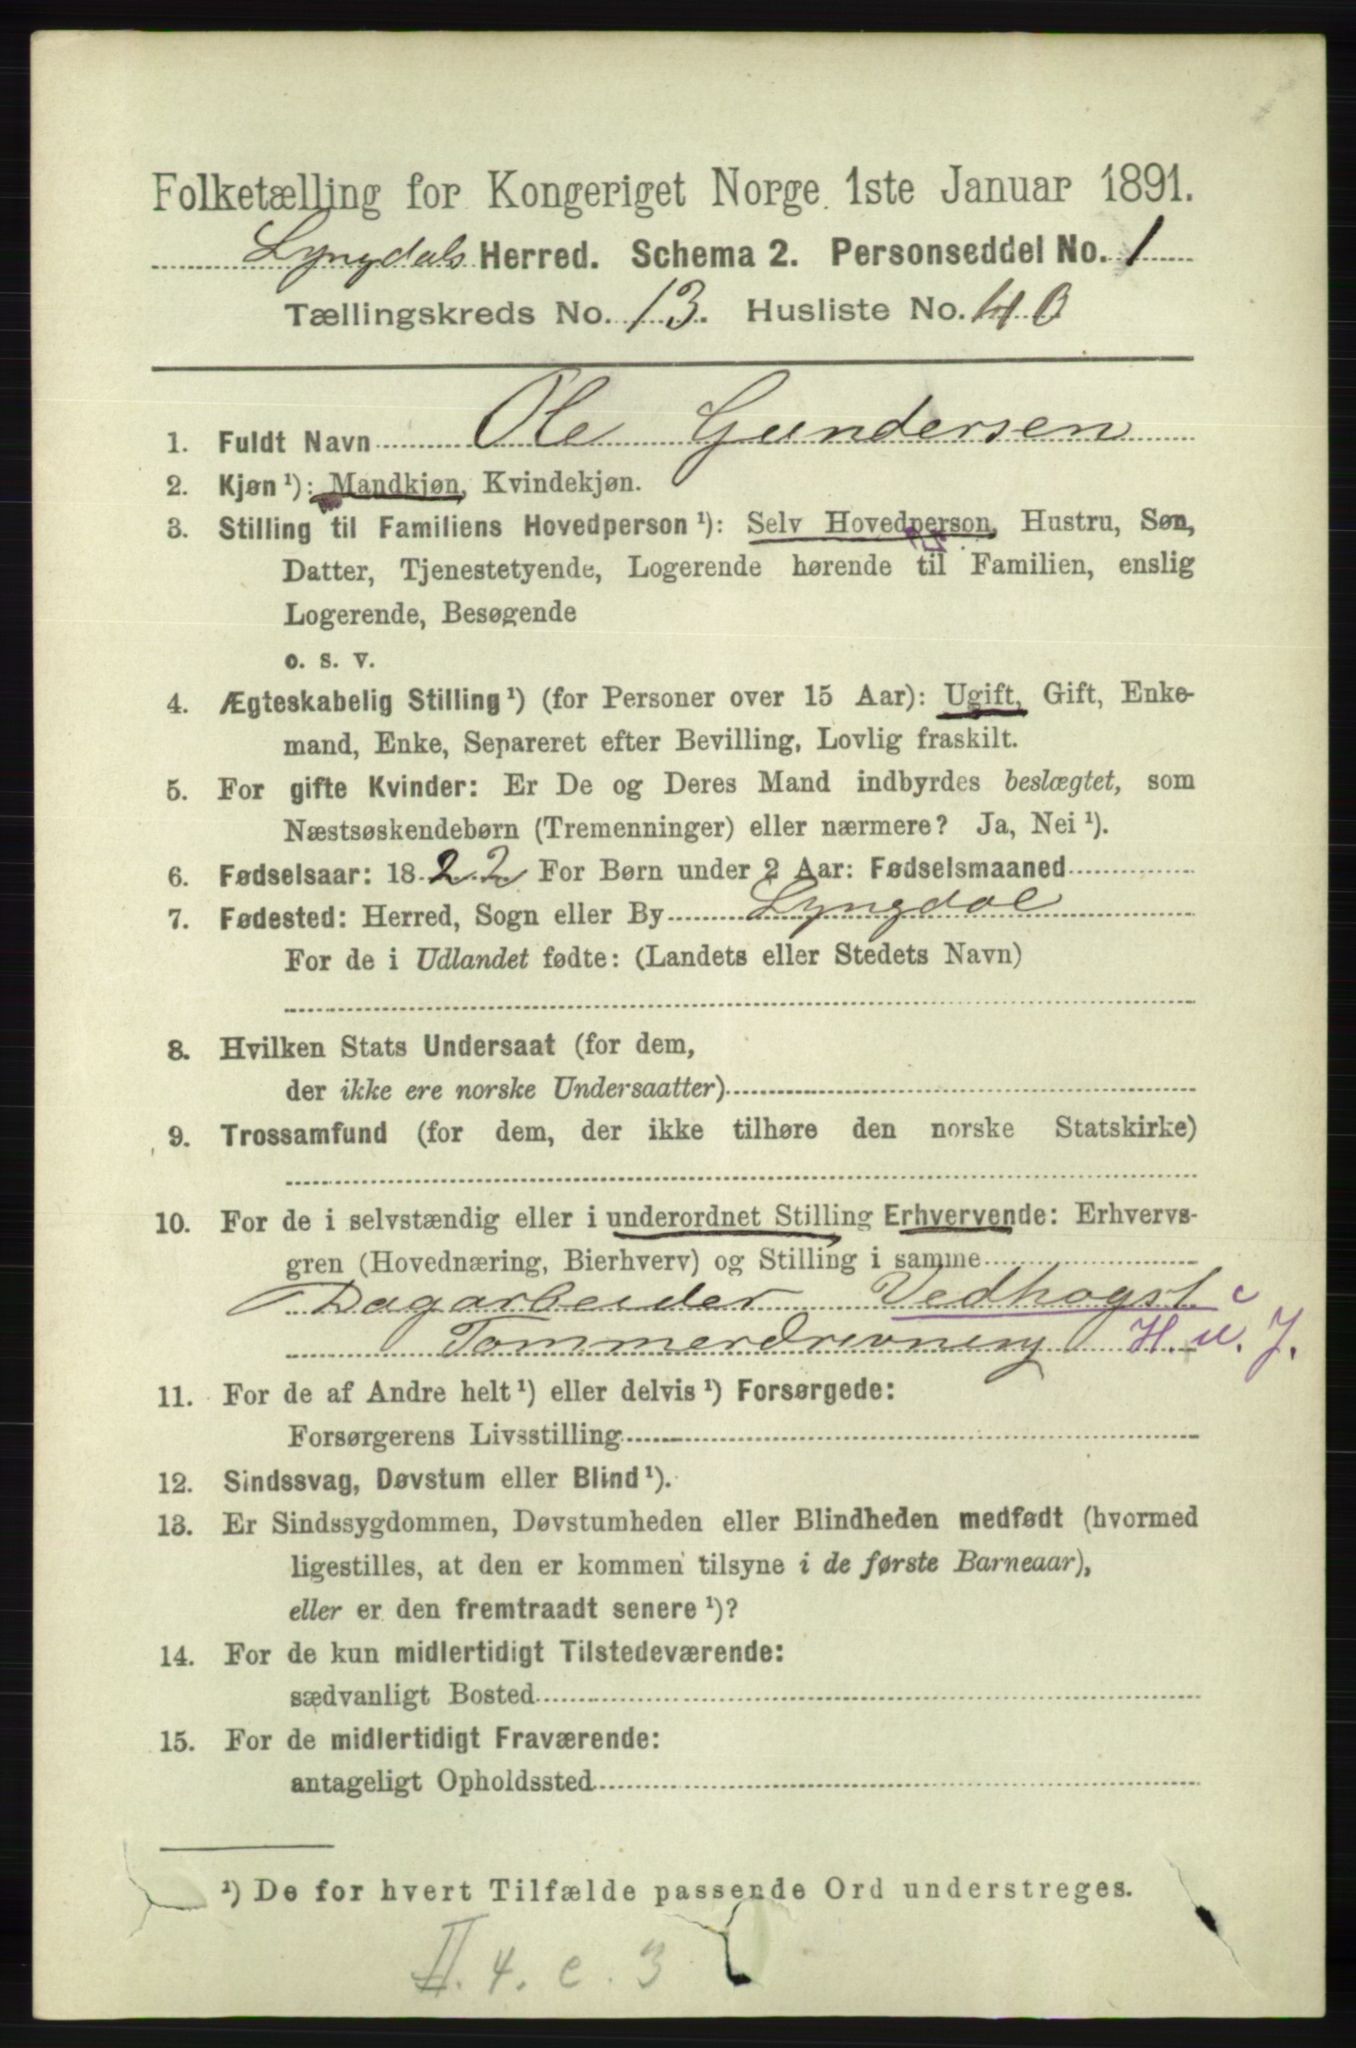 Folketælling for Kongeriget Norge 1ste Januar 1891.
Lyngdals Herred. Schema 2. Personseddel No. 1
Tællingskreds No. 13. Husliste No. 40
1. Fuldt Navn Ole Gundersen
2. Kjøn ¹): Mandkjøn, Kvindekjøn.
3. Stilling til Familiens Hovedperson ¹): Selv Hovedperson, Hustru, Søn,
Datter, Tjenestetyende, Logerende hørende til Familien, enslig
Logerende, Besøgende
o. s. v.
4. Ægteskabelig Stilling ¹) (for Personer over 15 Aar): Ugift, Gift, Enke-
mand, Enke, Separeret efter Bevilling, Lovlig fraskilt.
5. For gifte Kvinder: Er De og Deres Mand indbyrdes beslægtet, som
Næstsøskendebørn (Tremenninger) eller nærmere? Ja, Nei ¹).
6. Fødselsaar: 1822 For Børn under 2 Aar: Fødselsmaaned
7. Fødested: Herred, Sogn eller By Lyngdal
For de i Udlandet fødte: (Landets eller Stedets Navn)
8. Hvilken Stats Undersaat (for dem,
der ikke ere norske Undersaatter)
9. Trossamfund (for dem, der ikke tilhøre den norske Statskirke)
10. For de i selvstændig eller i underordnet Stilling Erhvervende: Erhvervs-
gren (Hovednæring, Bierhverv) og Stilling i samme
Dagarbeider Vedhogst
Tømmerdrivning H. u. J.
11. For de af Andre helt ¹) eller delvis ¹) Forsørgede:
Forsørgerens Livsstilling
12. Sindssvag, Døvstum eller Blind ¹).
13. Er Sindssygdommen, Døvstumheden eller Blindheden medfødt (hvormed
ligestilles, at den er kommen tilsyne i de første Barneaar),
eller er den fremtraadt senere ¹)?
14. For de kun midlertidigt Tilstedeværende:
sædvanligt Bosted
15. For de midlertidigt Fraværende:
antageligt Opholdssted
¹) De for hvert Tilfælde passende Ord understreges.
II. 4. e. 3